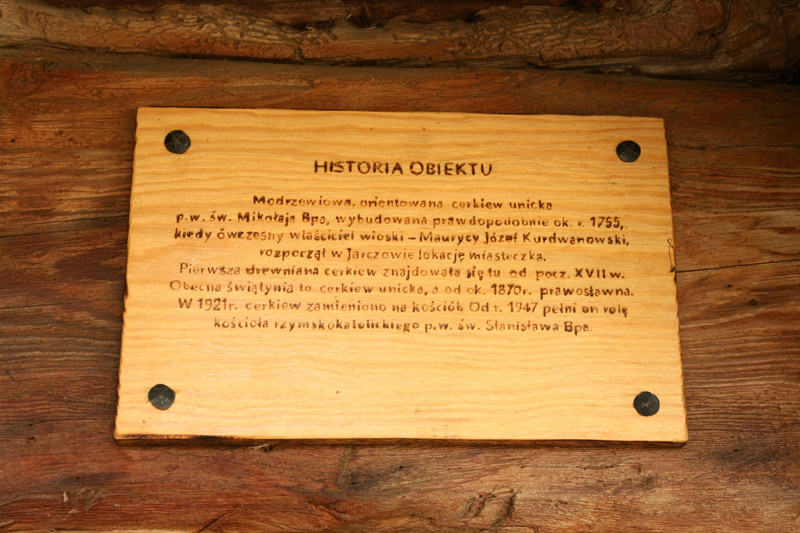 HISTORIA OBIEKTU
Modrzewiowa, orientowana cerkiew unicka
p.w. św. Mikołaja Bpa, wybudowana prawdopodobnie ok. r. 1755,
kiedy ówczesny właściciel wioski – Maurycy Józef Kurdwanowski,
rozpoczął w Jarczowie lokację miasteczka.
Pierwsza drewniana cerkiew znajdowała się tu od pocz. XVII w.
Obecna świątynia to cerkiew unicka, a od ok. 1870r. prawosławna.
W 1921r. cerkiew zamieniono na kościół. Od r. 1947 pełni on rolę
kościoła rzymskokatolickiego p.w. św. Stanisława Bpa.